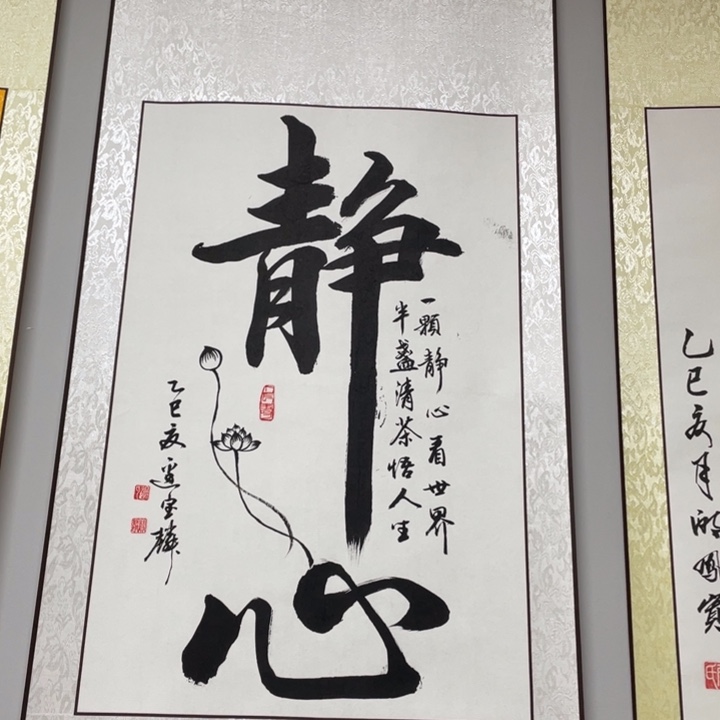 静心
一颗静心看世界
半盏清茶悟人生
乙巳夏
乙巳